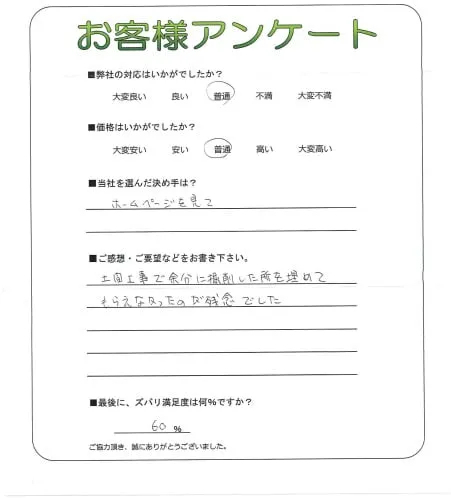 お客様アンケート
■弊社の対応はいかがでしたか?
大変良い 良い 普通 不満 大変不満
■価格はいかがでしたか?
大変安い 安い 普通 高い 大変高い
■当社を選んだ決め手は?
ホームページを見て
■ご感想・ご要望などをお書き下さい。
土間工事で余分に掘削した所を埋めて
もらえなかったのが残念でした
■最後に、ズバリ満足度は何%ですか?
60 %
ご協力頂き、誠にありがとうございました。